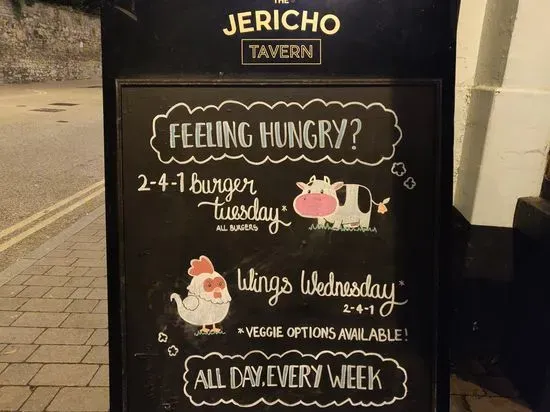 THE
JERICHO
TAVERN
FEELING HUNGRY?
2-4-1 burger
tuesday*
ALL BURGERS
Wings Wednesday*
2-4-1
*VEGGIE OPTIONS AVAILABLE!
ALL DAY, EVERY WEEK